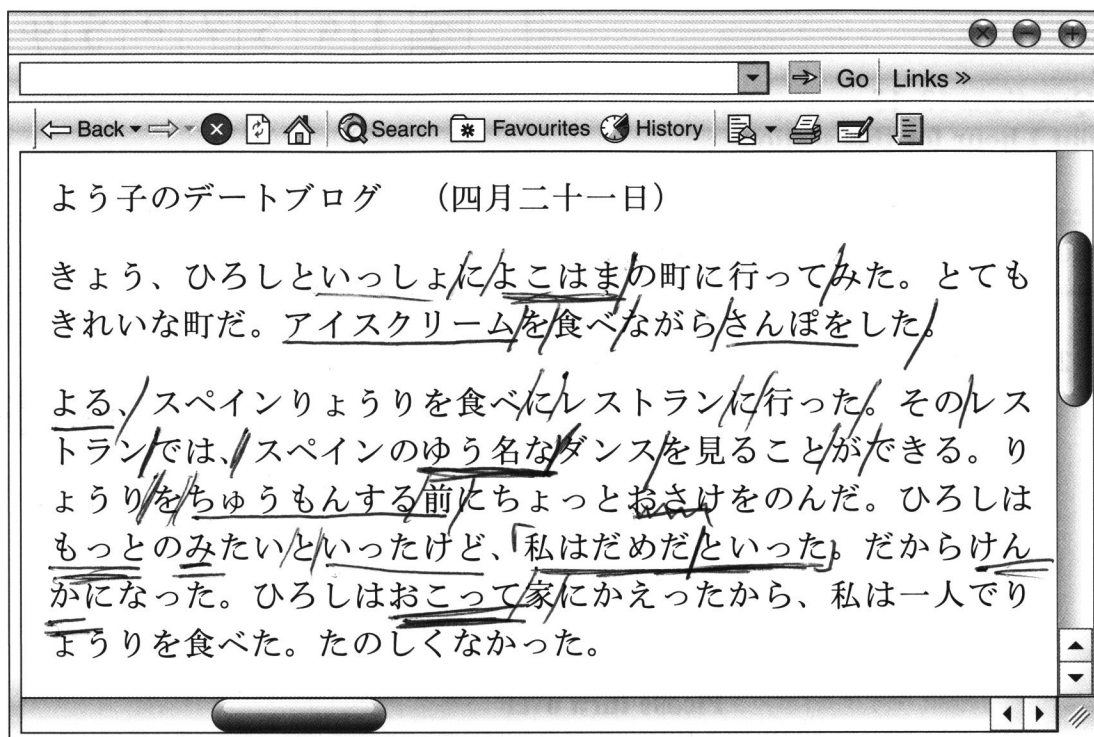 Go Links »
Back Search Favourites History
よう子のデートブログ （四月二十一日）
きょう、ひろしといっしょによこはまの町に行ってみた。とても
きれいな町だ。アイスクリームを食べながらさんぽをした。
よる、スペインりょうりを食べにレストランに行った。そのレス
トランでは、スペインのゆう名なダンスを見ることができる。り
ょうりをちゅうもんする前にちょっとおさけをのんだ。ひろしは
もっとのみたいといったけど、「私はだめだといった」。だからけん
かになった。ひろしはおこって家にかえったから、私は一人でり
ょうりを食べた。たのしくなかった。